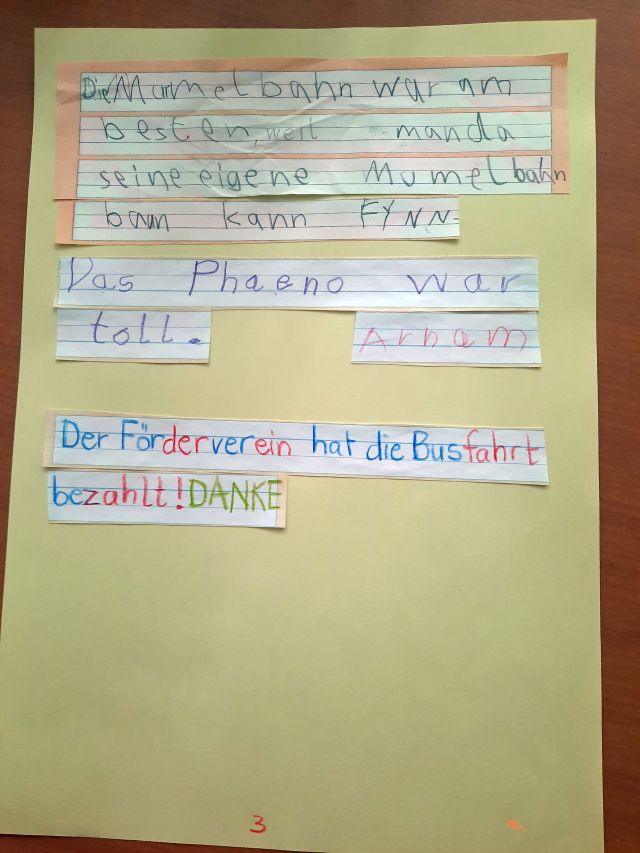 Die Murmelbahn war am
besten, weil manda
seine eigene Mumelbahn
baun kann FYNN-
Das Phaeno war
toll. Arham
Der Förderverein hat die Busfahrt
bezahlt! DANKE
3